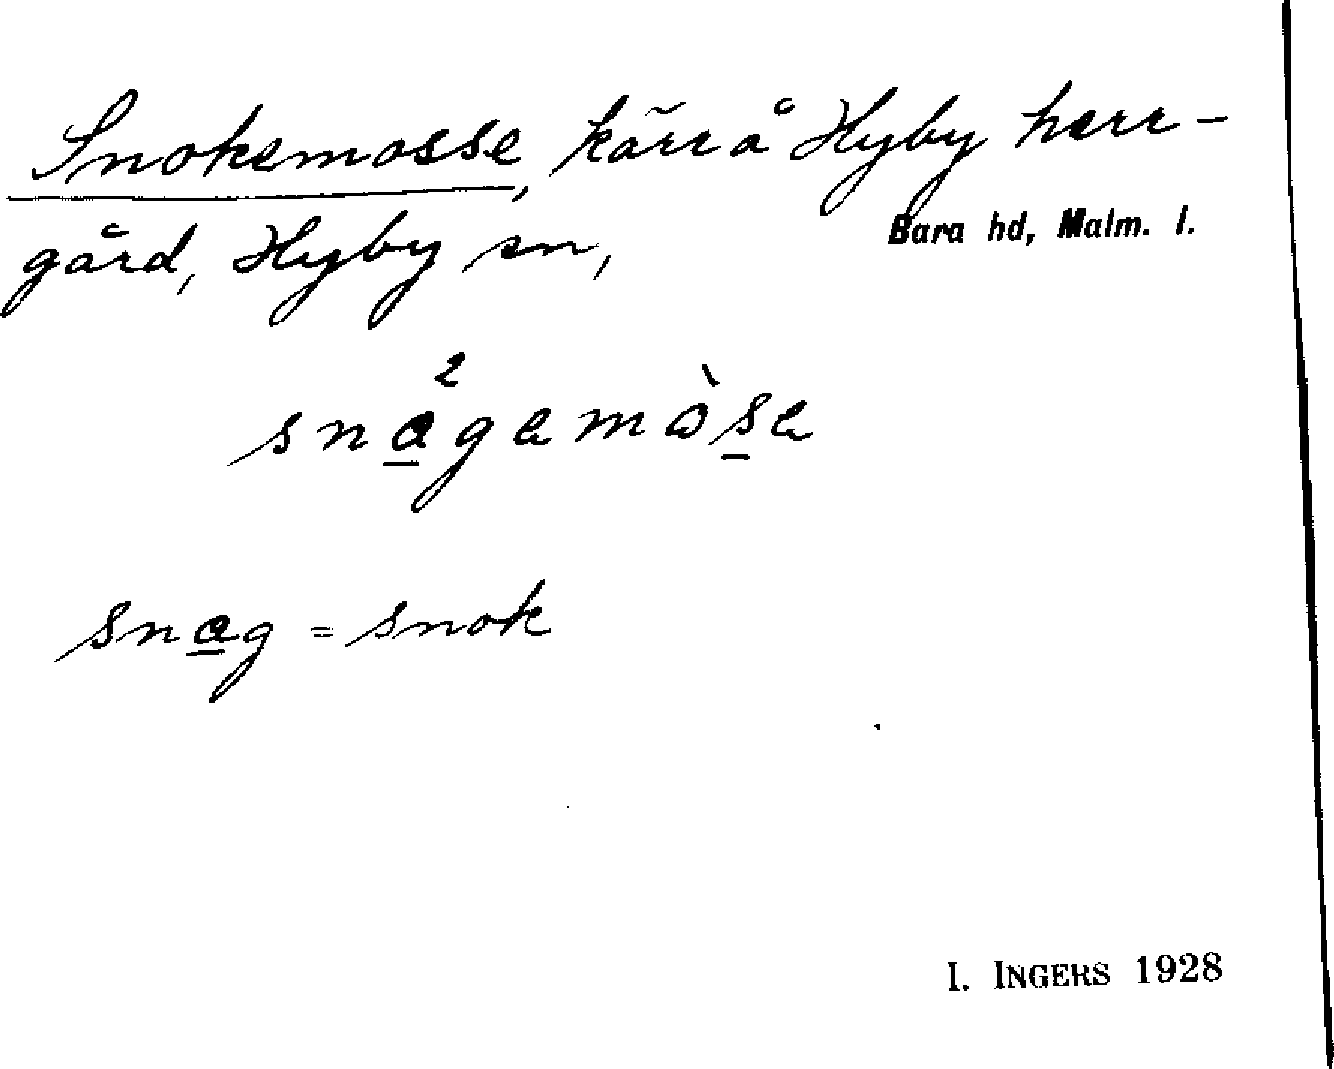 Snokemosse, kärr å Hyby herr-
gård, Hyby sn,
Bara hd, Malm. l.
sna̲²gemòs̲e
sna̲g = snok
I. INGERS 1928